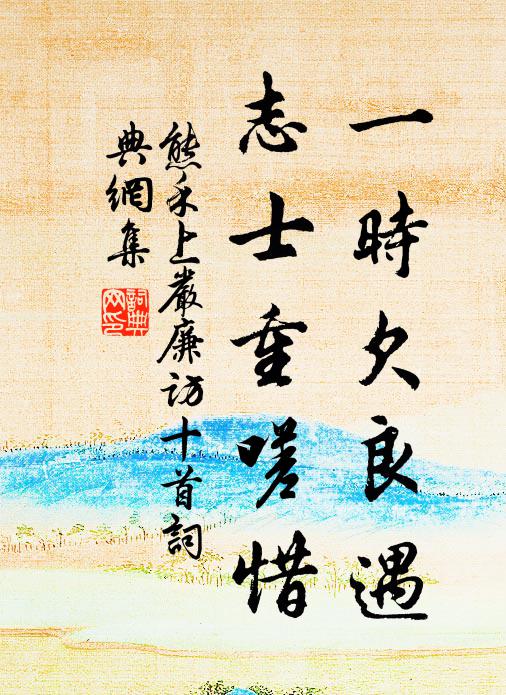 一時欠良遇
志士重嗟惜
熊禾上嚴廉訪十首詞
典網集
詞典
网印